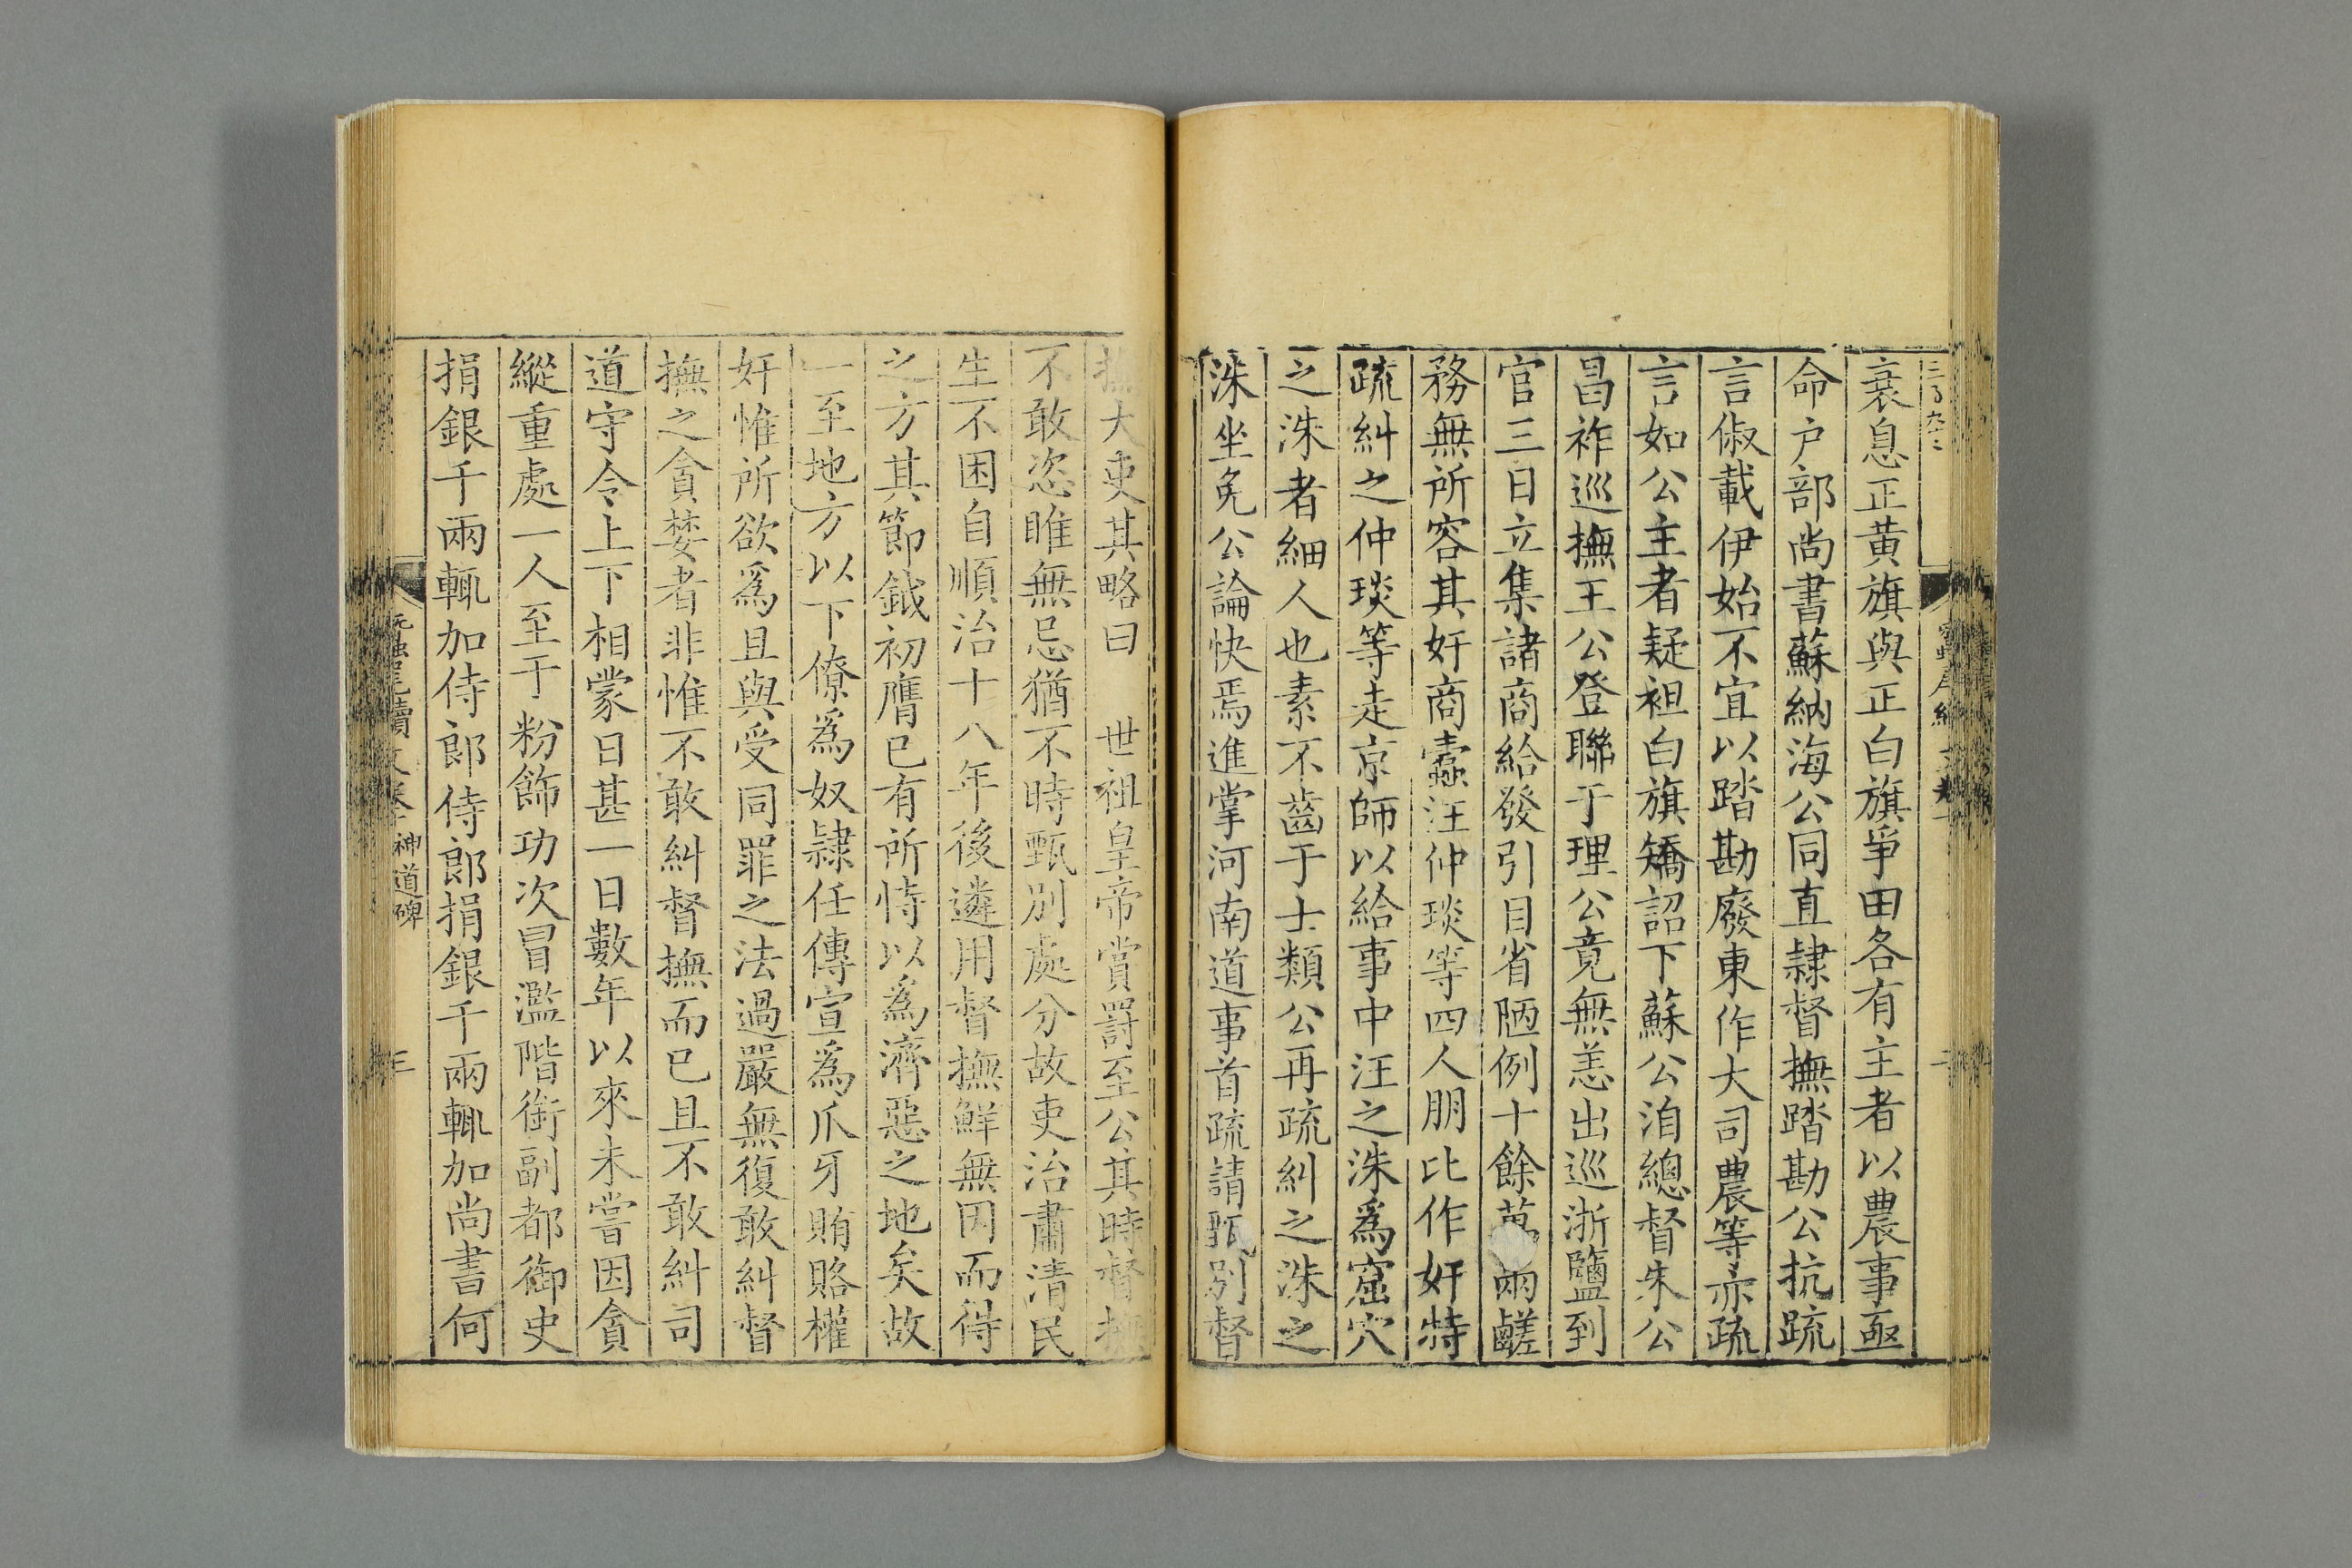 衰息正黄旗與正白旗爭田各有主者以農事亟
命戸部尚書蘇納海公同直隷督撫踏勘公抗疏
言俶載伊始不宜以踏勘廢東作大司農等亦疏
言如公主者疑袒白旗矯詔下蘇公洎總督朱公
昌祚巡撫王公登聯于理公竟無恙出巡浙鹽到
官三日立集諸商給發引目省陋例十餘萬兩鹺
務無所容其奸商蠹汪仲琰等四人朋比作奸特
疏糾之仲琰等走京師以給事中汪之洙爲窟穴
之洙者細人也素不齒于士類公再疏糾之洙之
洙坐免公論快焉進掌河南道事首疏請甄别督
撫大吏其略曰　世祖皇帝賞罰至公其時督撫
不敢恣睢無忌猶不時甄别處分故吏治肅清民
生不困自順治十八年後遴用督撫鮮無因而得
之方其節鉞初膺已有所恃以爲濟惡之地矣故
一至地方以下僚爲奴隷任傳宣爲爪牙賄賂權
奸惟所欲爲且與受同罪之法過嚴無復敢糾督
撫之貪婪者非惟不敢糾督撫而已且不敢糾司
道守令上下相蒙日甚一日數年以來未嘗因貪
縱重處一人至于粉飾功次冒濫階銜副都御史
捐銀千兩輒加侍郎侍郎捐銀千兩輒加尚書何
神道碑
三